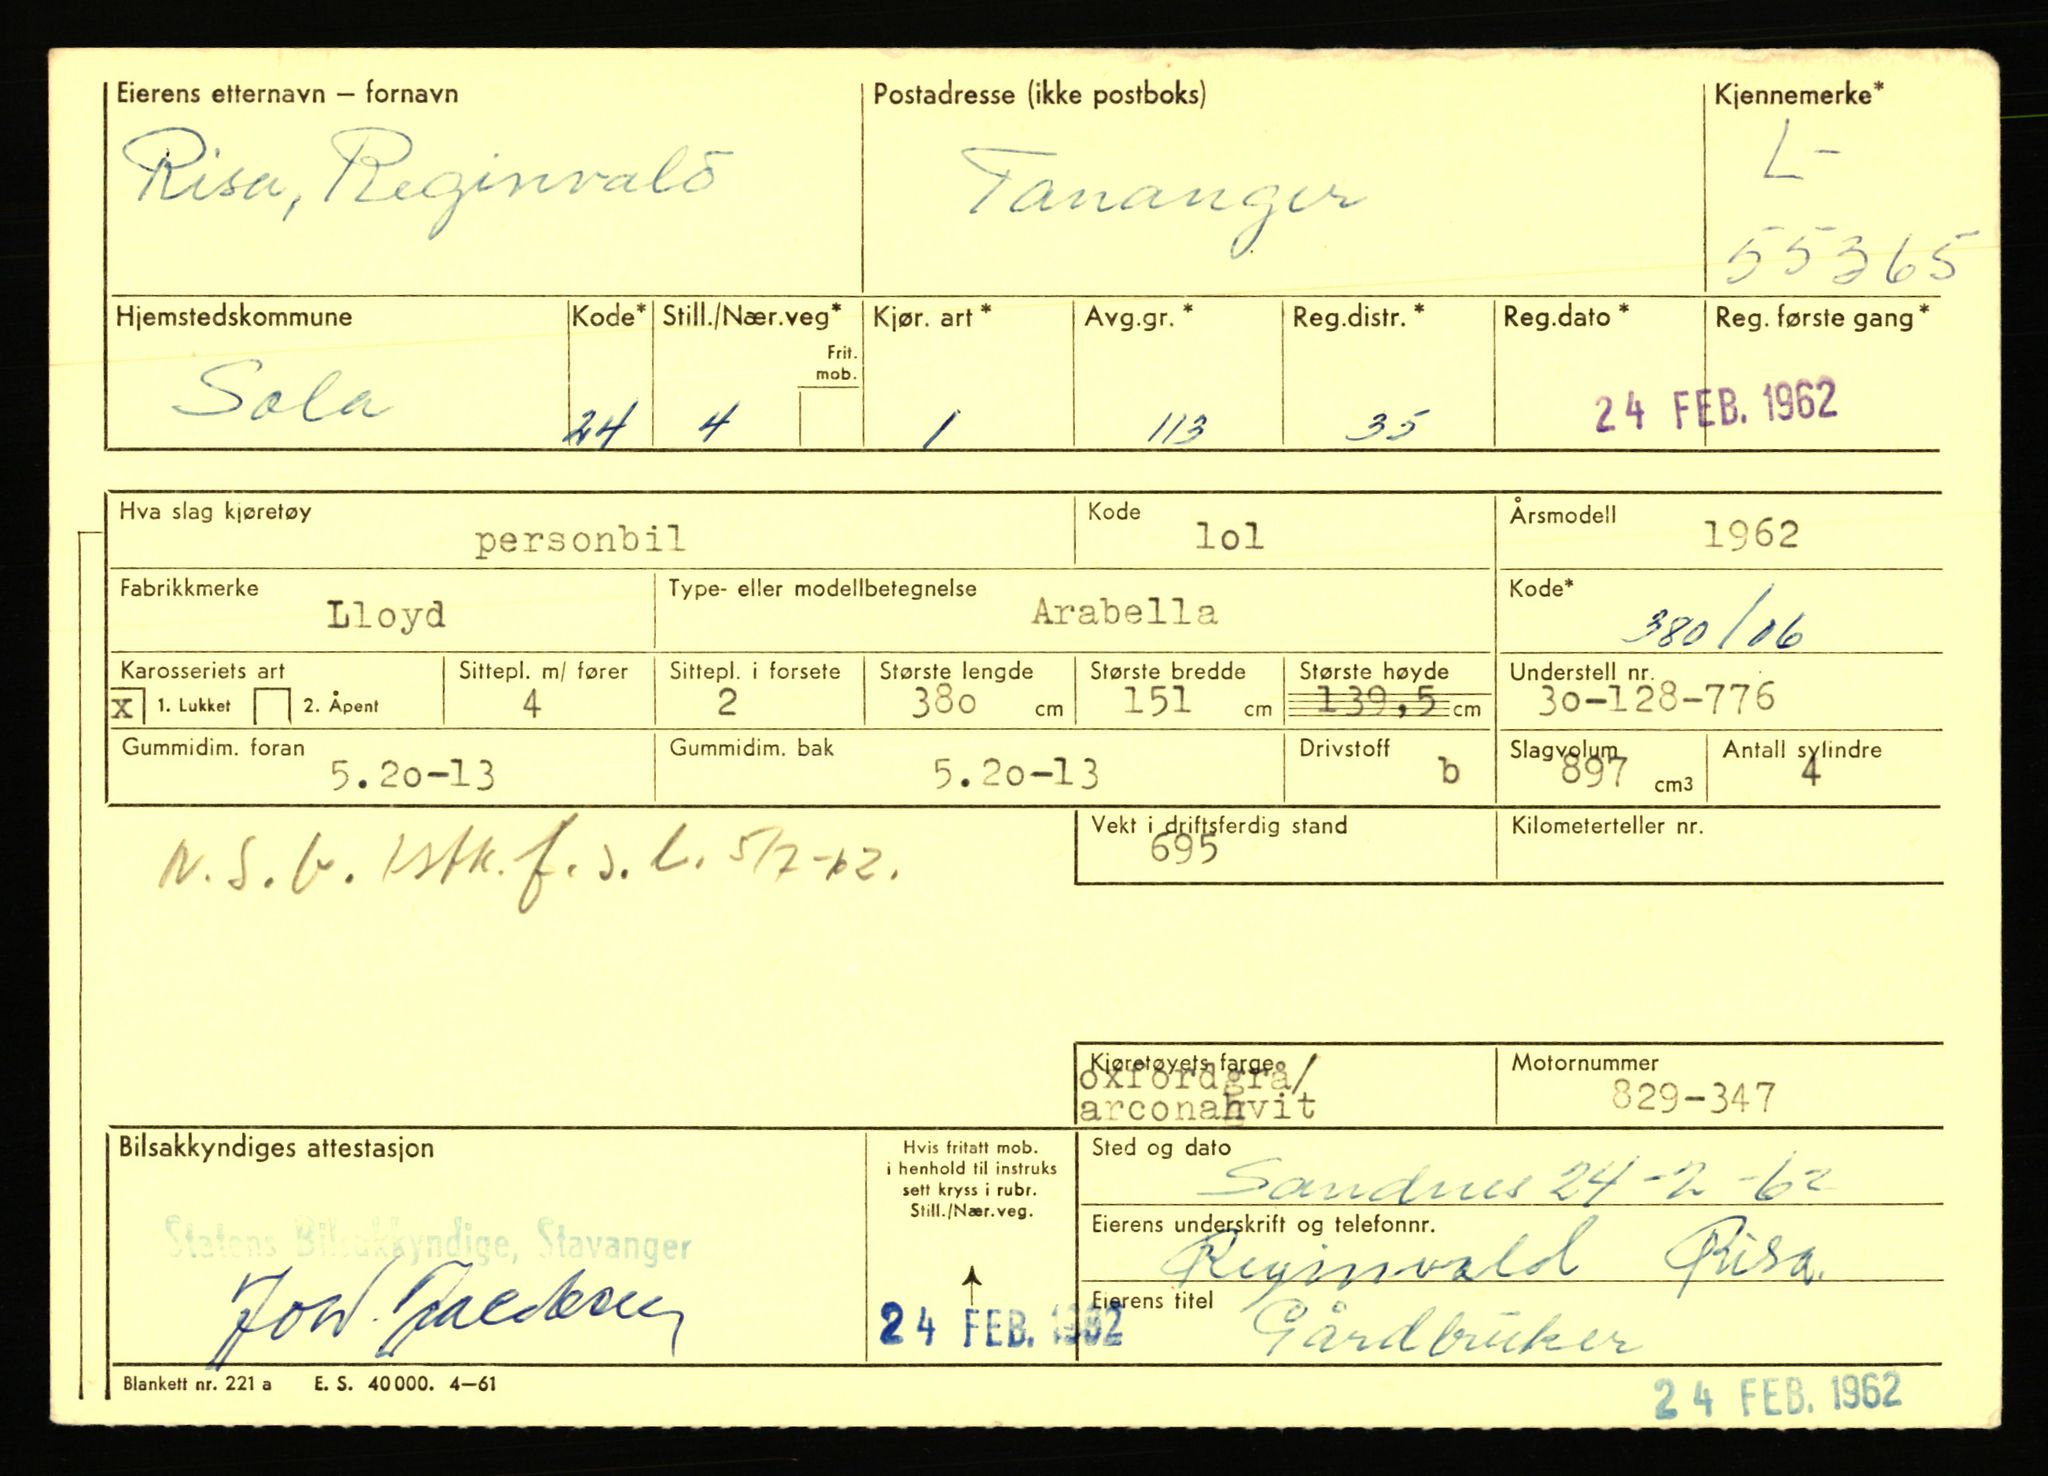 Eierens etternavn – fornavn
Risa, Reginvald
Postadresse (ikke postboks)
Tananger
Kjennemerke*
L-
55365
Hjemstedskommune
Sola
Kode*
24
Still./Nær.veg*
4
Frit.
mob.
Kjør. art *
1
Avg.gr. *
113
Reg.distr. *
35
Reg.dato *
Reg. første gang *
24 FEB. 1962
Hva slag kjøretøy
personbil
Kode
lol
Årsmodell
1962
Fabrikkmerke
Lloyd
Type- eller modellbetegnelse
Arabella
Kode*
380/06
Karosseriets art
x 1. Lukket 2. Åpent
Sittepl. m/ fører
4
Sittepl. i forsete
2
Største lengde
38o cm
Største bredde
151 cm
Største høyde
139,5 cm
Understell nr.
3o-128-776
Gummidim. foran
5.2o-13
Gummidim. bak
5.2o-13
Drivstoff
b
Slagvolum
897 cm3
Antall sylindre
4
Vekt i driftsferdig stand
695
Kilometerteller nr.
N.S.U. 1stk. f.s.l. 5/7-62.
Kjøretøyets farge
oxfordgrå/
arconahvit
Motornummer
829-347
Bilsakkyndiges attestasjon
Statens Bilsakkyndige, Stavanger
Hvis fritatt mob.
i henhold til instruks
sett kryss i rubr.
Still./Nær.veg.
24 FEB. 1962
Sted og dato
Sandnes 24-2-62
Eierens underskrift og telefonnr.
Reginvald Risa.
Eierens titel
Gårdbruker
Blankett nr. 221 a E. S. 40 000. 4–61
24 FEB. 1962